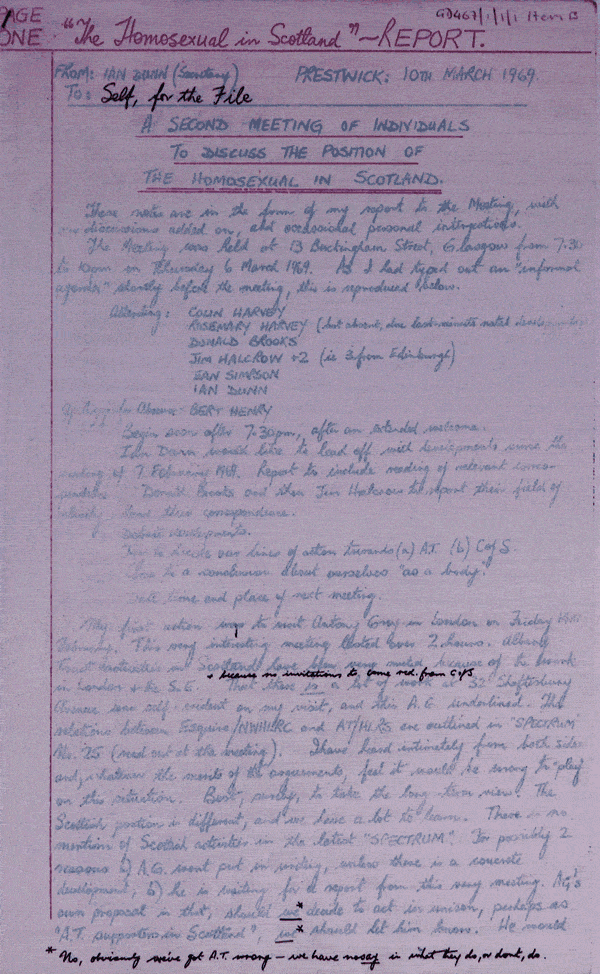 PAGE ONE
GD467/1/1/1 Item B
"The Homosexual in Scotland" ~ REPORT.
FROM: IAN DUNN (Secretary) PRESTWICK: 10TH MARCH 1969.
To: Self, for the File
A SECOND MEETING OF INDIVIDUALS
TO DISCUSS THE POSITION OF
THE HOMOSEXUAL IN SCOTLAND.
These notes are in the form of my report to the Meeting, with
discussions added on, and occasional personal interjections.
The Meeting was held at 13 Buckingham Street, Glasgow from 7.30
to on Thursday 6 March 1969. As I had typed out an "informal
agenda" shortly before the meeting, this is reproduced below.
Attending: COLIN HARVEY
ROSEMARY HARVEY (but absent, due last-minute
DONALD BROOKS
JIM HALCROW +2 (ie 3 from Edinburgh)
IAN SIMPSON
IAN DUNN
Apologies for Absence BERT HENRY
Begin soon after 7.30pm, after an extended welcome.
Ian Dunn would like to lead off with developments since the
meeting of 7 February 1969. Report to include reading of relevant
and then Jim Halcrow to report their field of
correspondence.
Debate developments.
to decide our lines of action towards (a) A.T. (b) C of S.
to a conclusion about ourselves "as a body."
time and place of next meeting.
My first action was to visit Antony Grey in London on Friday
February. This very interesting meeting lasted over 2 hours. Albany
Trust activities in Scotland have been very muted because of the
* because no invitations to come recd. from C of S
in London & the S.E. That there is a lot of work at 32 Shaftesbury
Avenue was self evident on my visit, and this A.G. underlined. The
relations between Esquire/NWHLRC and AT/HLRS are outlined in "SPECTRUM"
No. 25 (read out at the meeting). I have heard intimately from both sides
and, whatever the merits of the arguments, feel it would be wrong to "play"
on this situation. Best, surely, to take the long term view. The
Scottish position is different, and we have a lot to learn. There is no
mention of Scottish activities in the latest "SPECTRUM". For possibly 2
reasons a) A.G. wont put in writing, unless there is a concrete
development, b) he is waiting for a report from this very meeting. AG's
own proposal is that, should we* decide to act in unison, perhaps as
"A.T. supporters in Scotland", we* should let him know. He would
* No, obviously we've got A.T. wrong – we have no say in what they do, or dont, do.